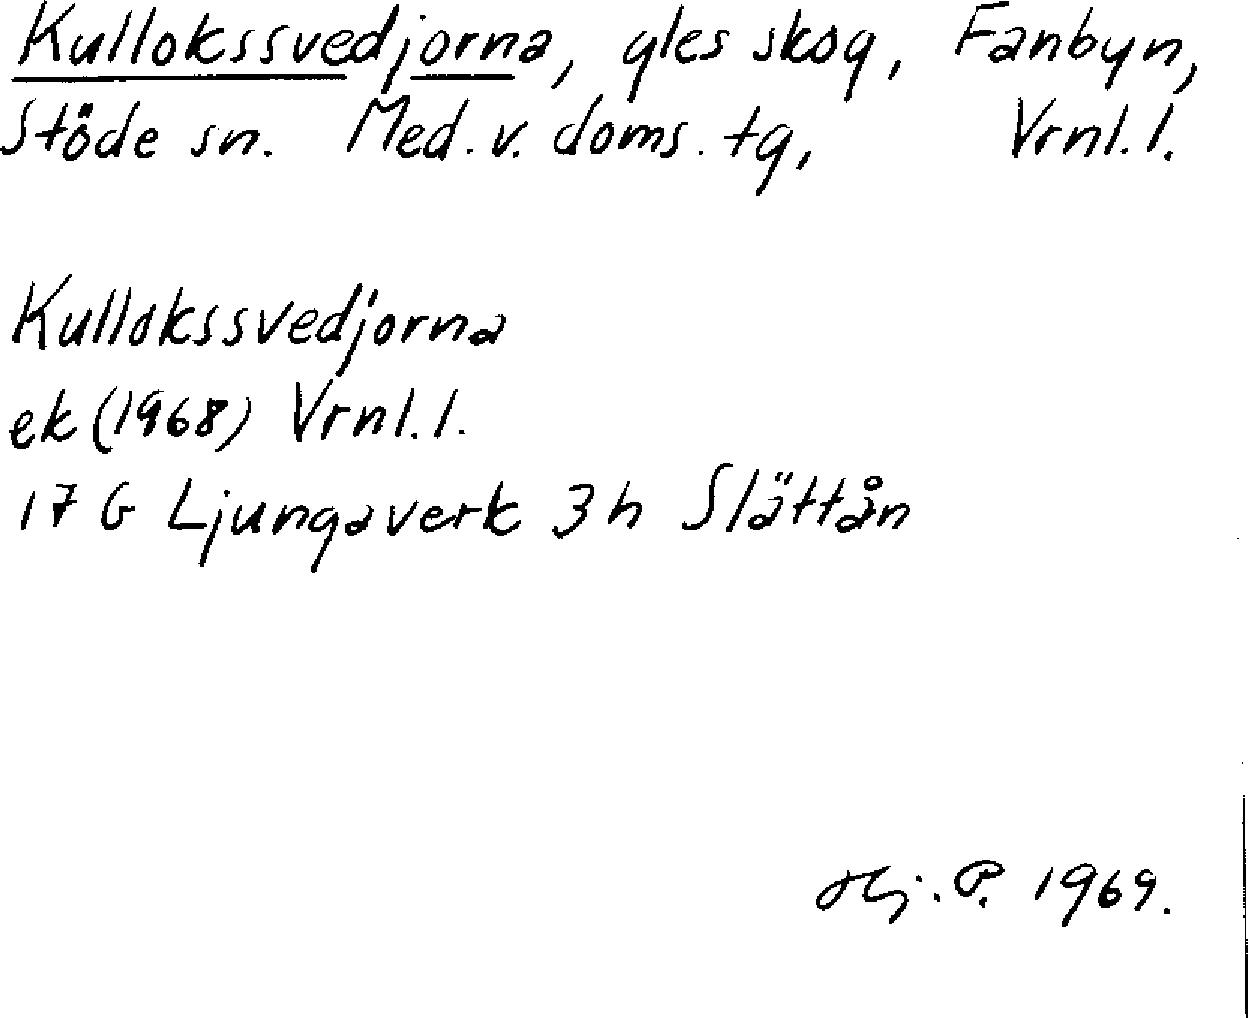 Kullokssvedjorna, gles skog, Fanbyn,
Stöde sn. Med. v. doms. tg, Vrnl. l.
Kullokssvedjorna
ek (1968) Vrnl. l.
17 G Ljungaverk 3 h Slättån
Hj. P. 1969.